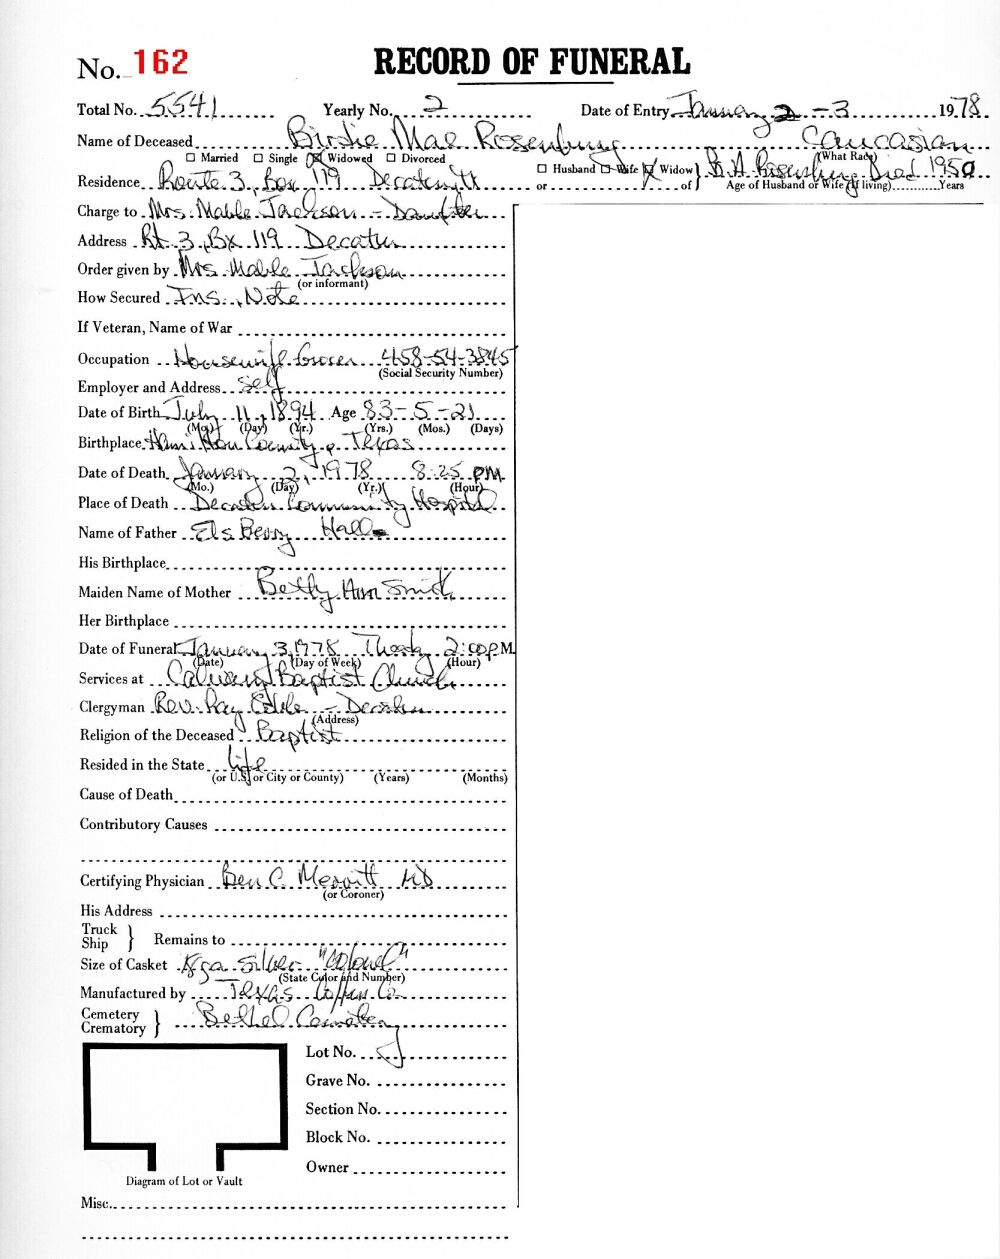 No. 162 RECORD OF FUNERAL
Total No. 5541 Yearly No. 2 Date of Entry January 2-3 1978
Name of Deceased Birdie Mae Rosenburg Caucasian
☐ Married ☐ Single ☒ Widowed ☐ Divorced (What Race)
Residence Route 3, Box 119 Decatur ☐ Husband ☐ Wife or Widow of } Died 1950
Age of Husband or Wife (if living) Years
Charge to Mrs. Mable Jackson - Daughter
Address Rt 3, Bx 119 Decatur
Order given by Mrs. Mable Jackson
(or informant)
How Secured Ins., Note
If Veteran, Name of War
Occupation Housewife 458-54-3845
(Social Security Number)
Employer and Address Self
Date of Birth July 11, 1894 Age 83-5-21
(Mo.) (Day) (Yr.) (Yrs.) (Mos.) (Days)
Birthplace Hamilton County, Texas
Date of Death January 2, 1978 8:25 PM
(Mo.) (Day) (Yr.) (Hour)
Place of Death Decatur Community Hospital
Name of Father Els Berry Hall
His Birthplace
Maiden Name of Mother Betty Ann Smith
Her Birthplace
Date of Funeral January 3, 1978 2:00 P.M
(Date) (Day of Week) (Hour)
Services at Calvary Baptist Church
Clergyman Rev. Ray - Decatur
(Address)
Religion of the Deceased Baptist
Resided in the State life
(or U.S. or City or County) (Years) (Months)
Cause of Death
Contributory Causes
Certifying Physician Ben C. Merritt MD
(or Coroner)
His Address
Truck
Ship } Remains to
Size of Casket Silver "Colonel"
(State Color and Number)
Manufactured by Texas Coffin Co.
Cemetery
Crematory } Bethel Cemetery
Lot No.
Grave No.
Section No.
Block No.
Owner
Diagram of Lot or Vault
Misc.